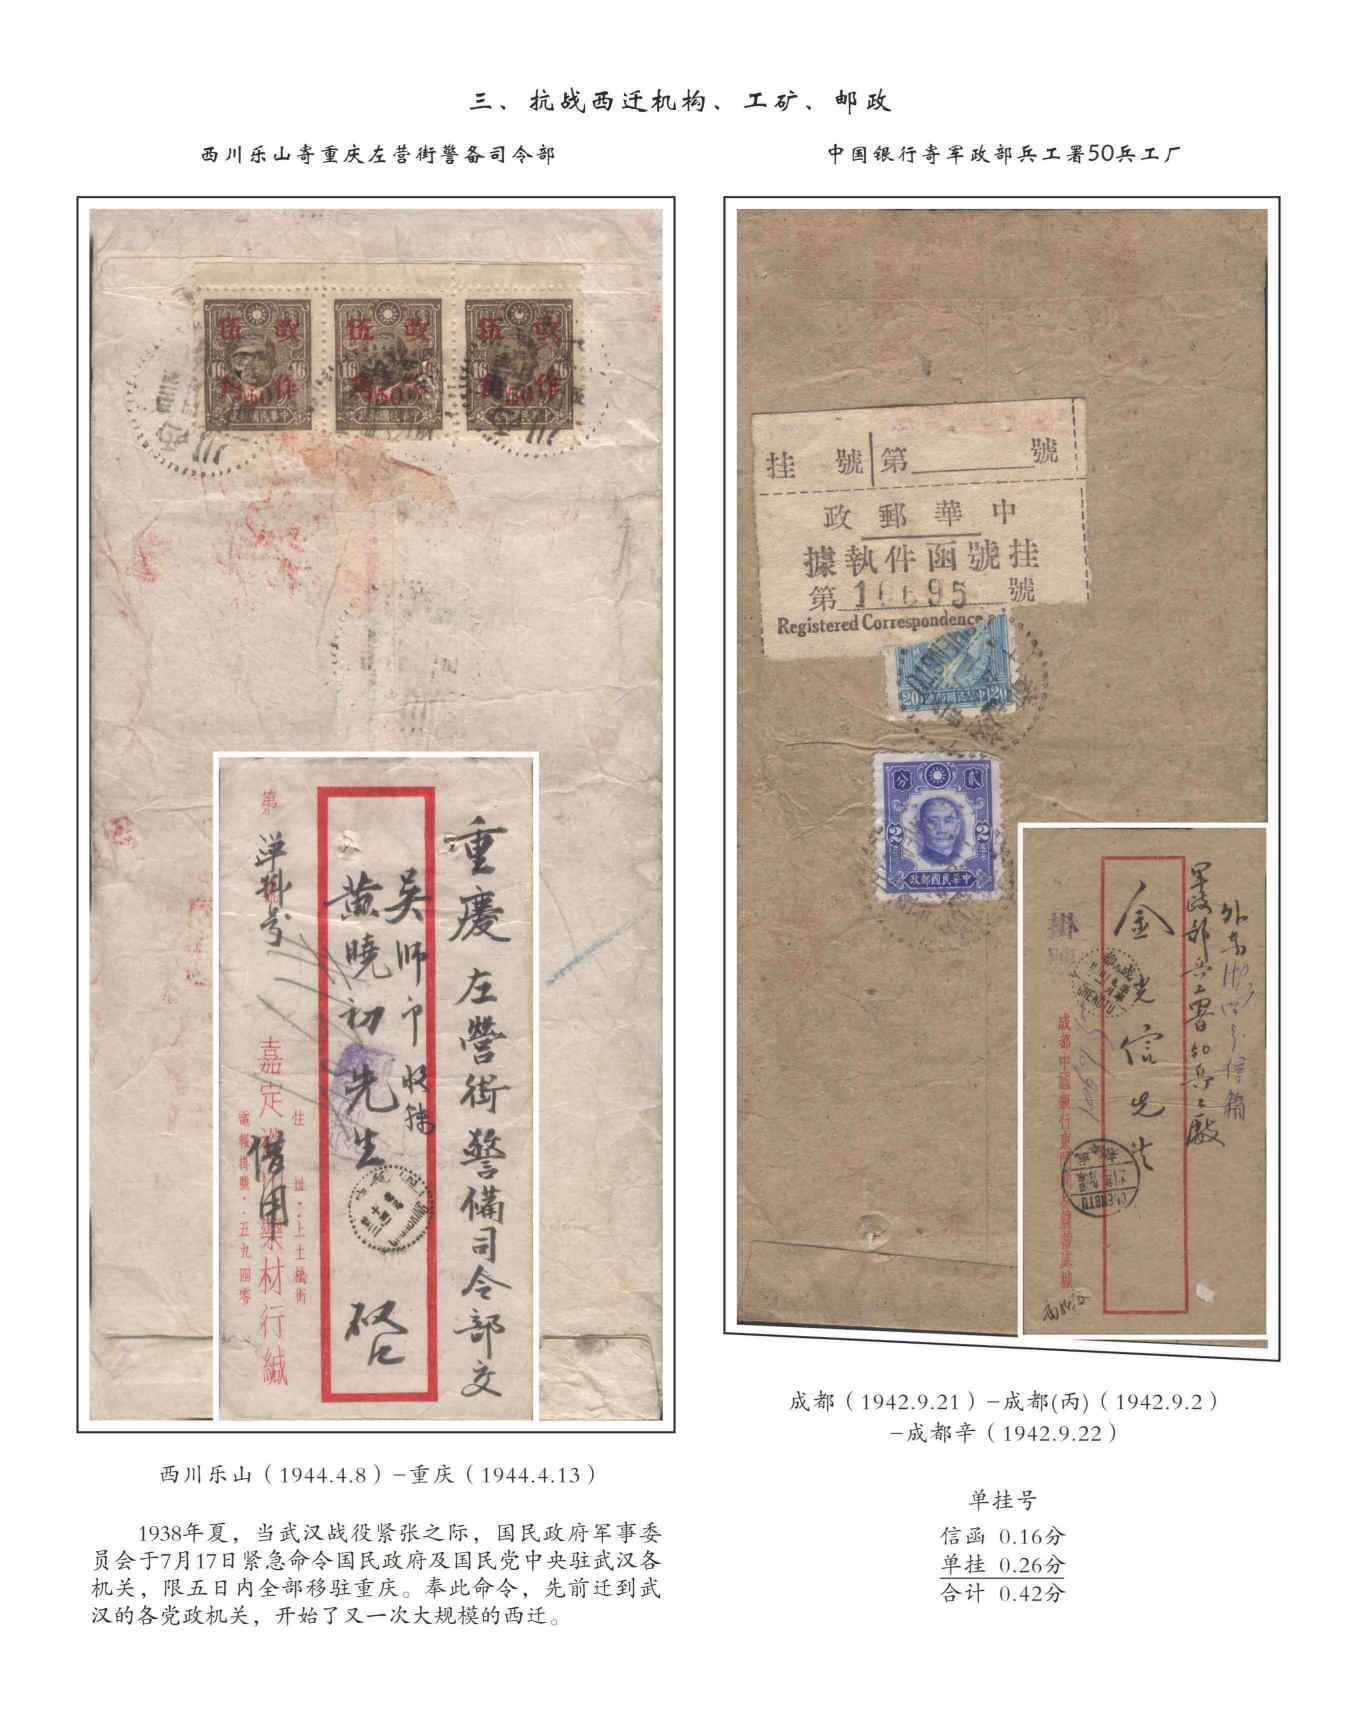 三、抗战西迁机构、工矿、邮政
西川乐山寄重庆左营街警备司令部
改作
伍角
50
16
16
中華民國郵政
改作
伍角
50
16
16
改作
伍角
50
16
第
单掛号
重慶左營街警備司令部交
吴师
黄曉初先生
啟
借用
嘉定
藥材行緘
住址:上土
街
電報掛號:五九四零
西川乐山（1944.4.8）–重庆（1944.4.13）
1938年夏，当武汉战役紧张之际，国民政府军事委
员会于7月17日紧急命令国民政府及国民党中央驻武汉各
机关，限五日内全部移驻重庆。奉此命令，先前迁到武
汉的各党政机关，开始了又一次大规模的西迁。
中国银行寄军政部兵工署50兵工厂
挂號第 號
中華郵政
挂號函件執據
第 號
Registered Correspondence
20
20
貳分
2
2
中華民國郵政
外东
信箱
军政部兵工署50兵工廠
金
信先生
掛號
CHENGTU
CHENGTU
成都中國銀行東
成都（1942.9.21）–成都(丙)（1942.9.2）
–成都辛（1942.9.22）
单挂号
信函 0.16分
单挂 0.26分
合计 0.42分